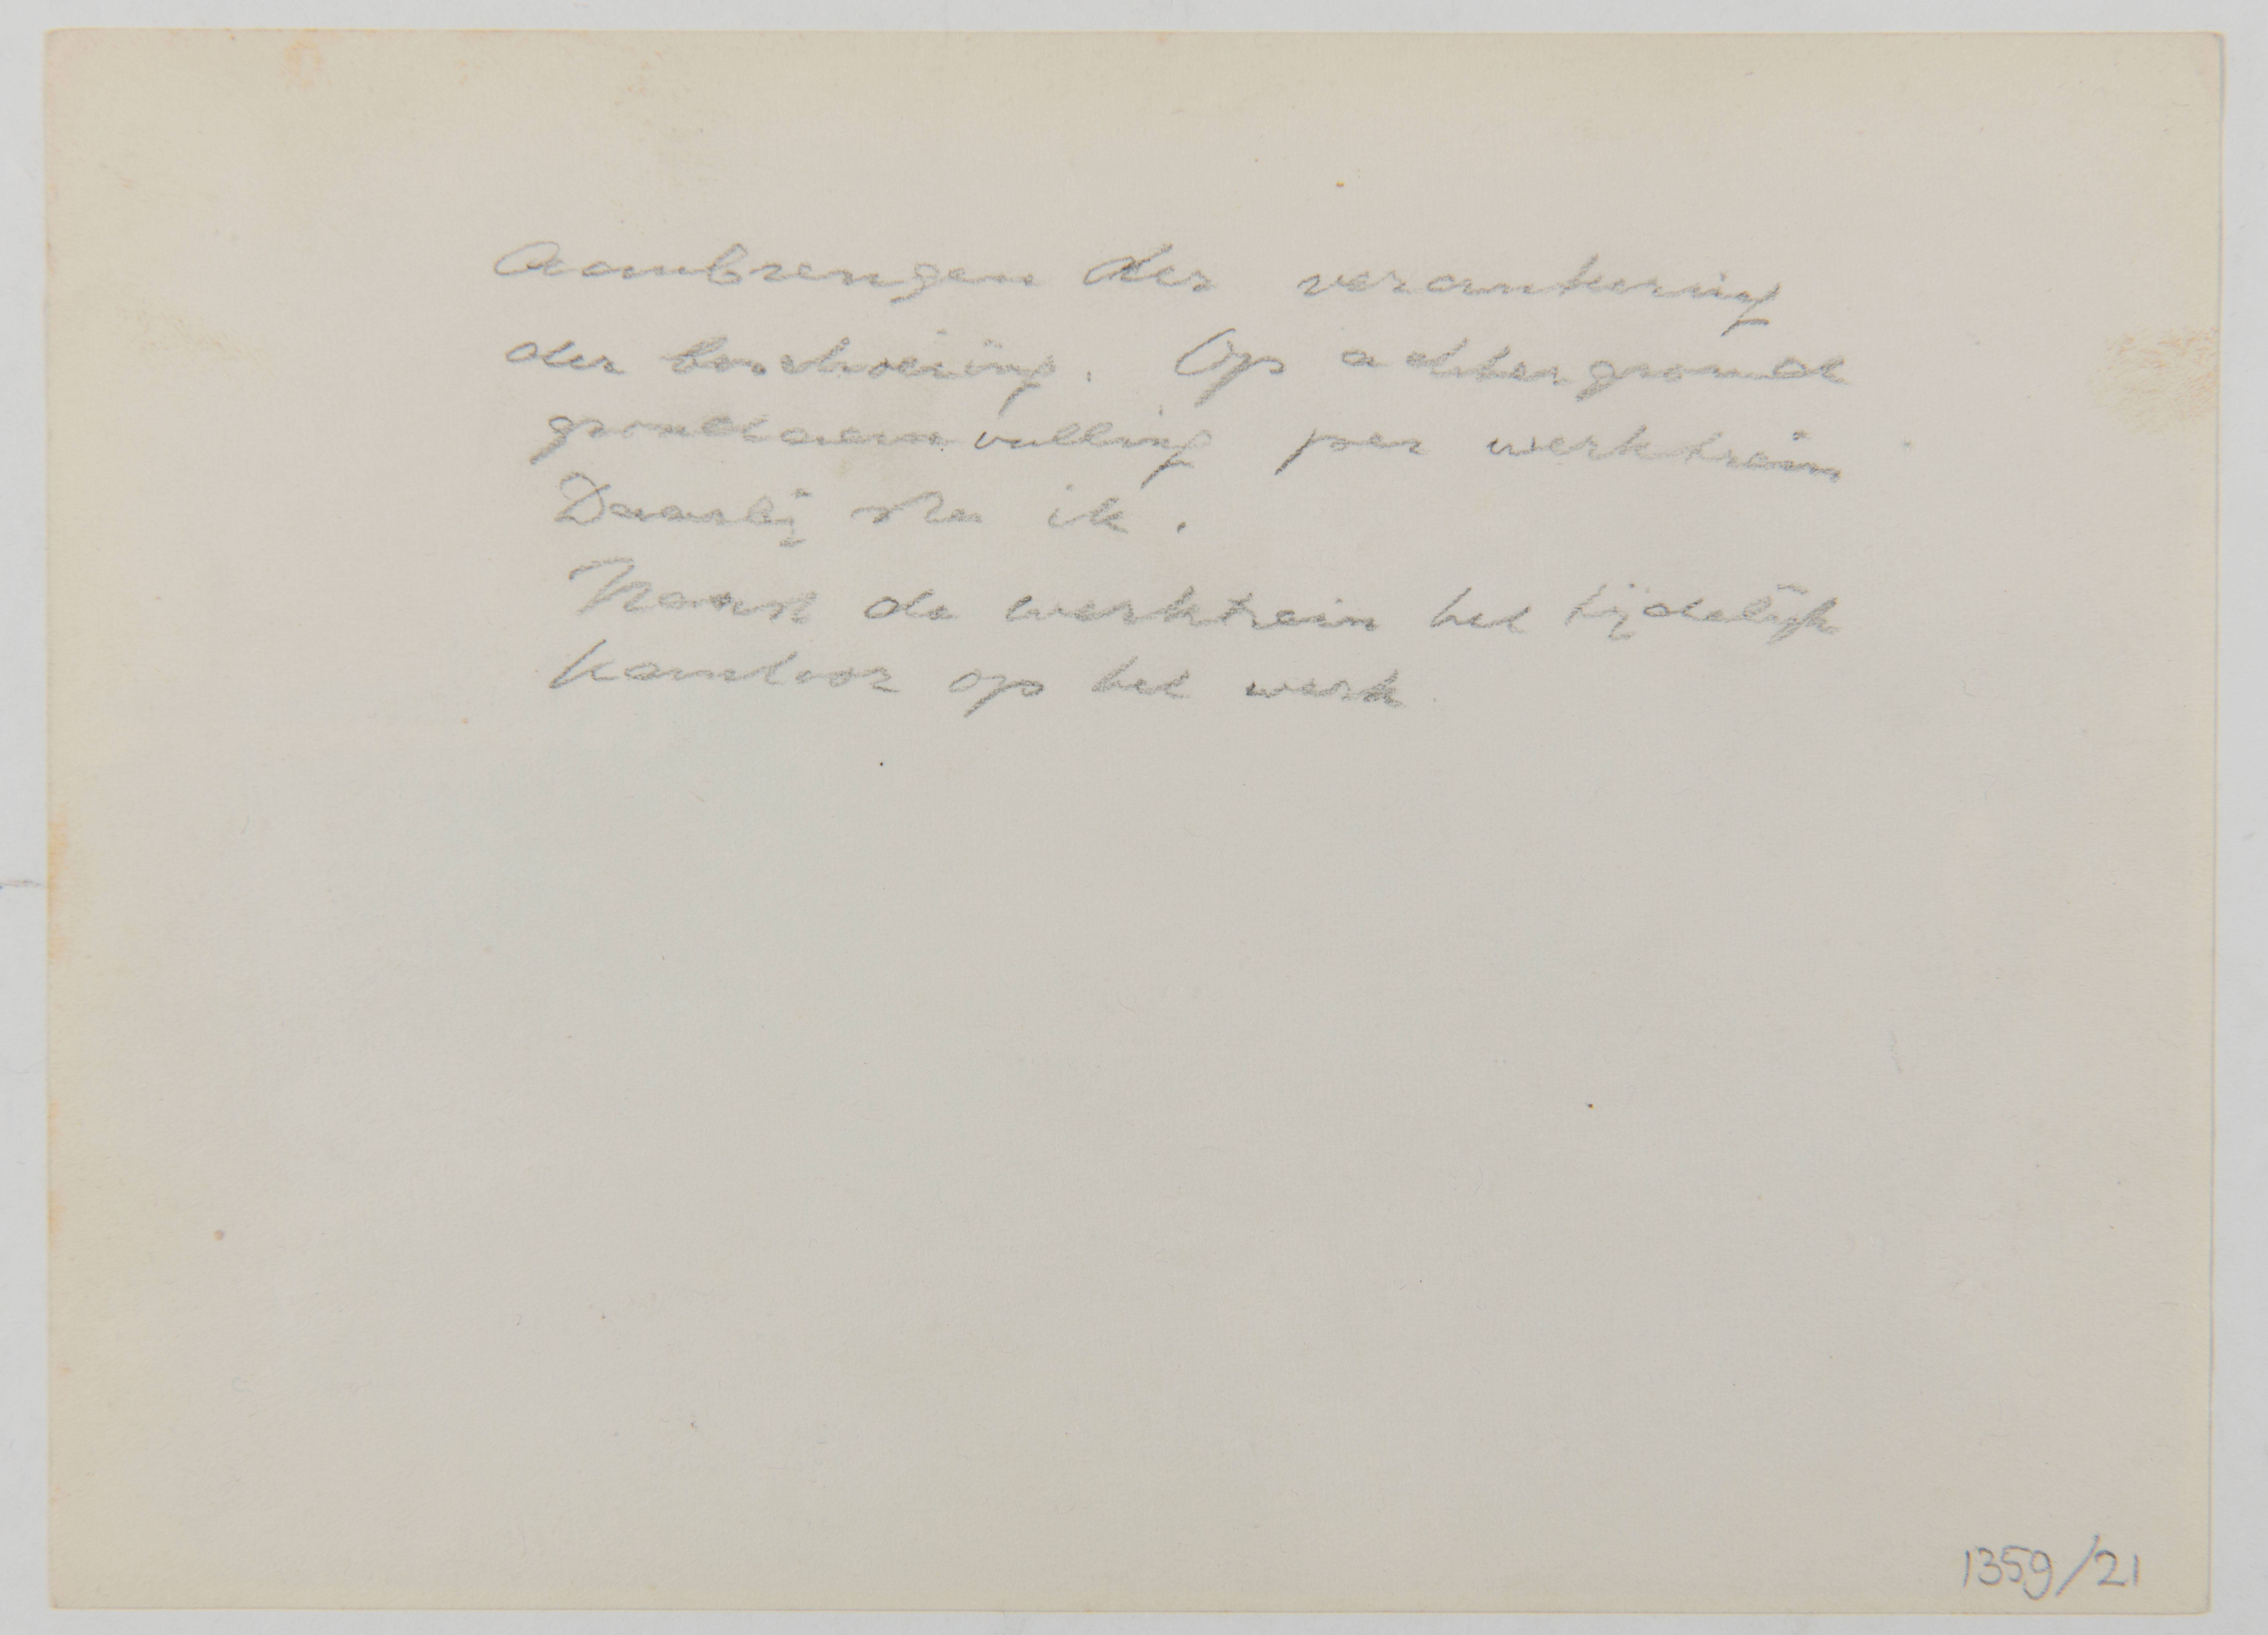 Aanbrengen der verankering
der beschoeiing. Op achtergrond
grondaanvulling per werktrein
Daarbij sta ik.
Naast de werktrein het tijdelijk
kantoor op het werk
1359/21